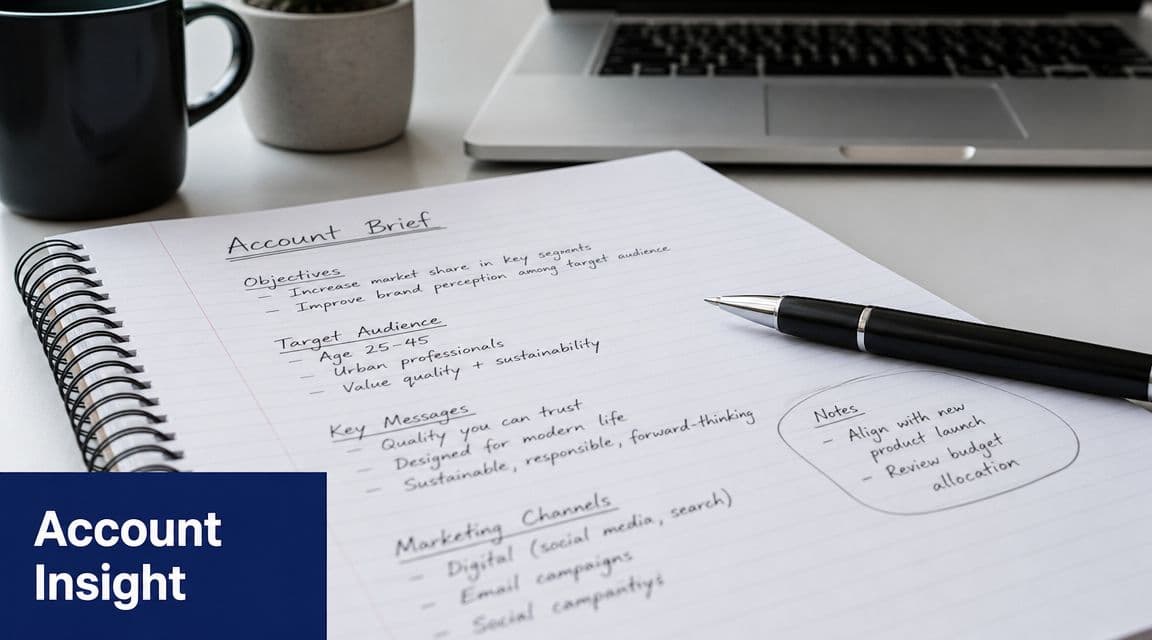 Account Brief
Objectives
- Increase market share in key segments
- Improve brand perception among target audience
Target Audience
- Age 25-45
- Urban professionals
- Value quality + sustainability
Key Messages
- Quality you can trust
- Designed for modern life
- Sustainable, responsible, forward-thinking
Marketing Channels
- Digital (social media, search)
- Email campaigns
- Social
Notes
- Align with new
product launch
- Review budget
allocation
Account
Insight